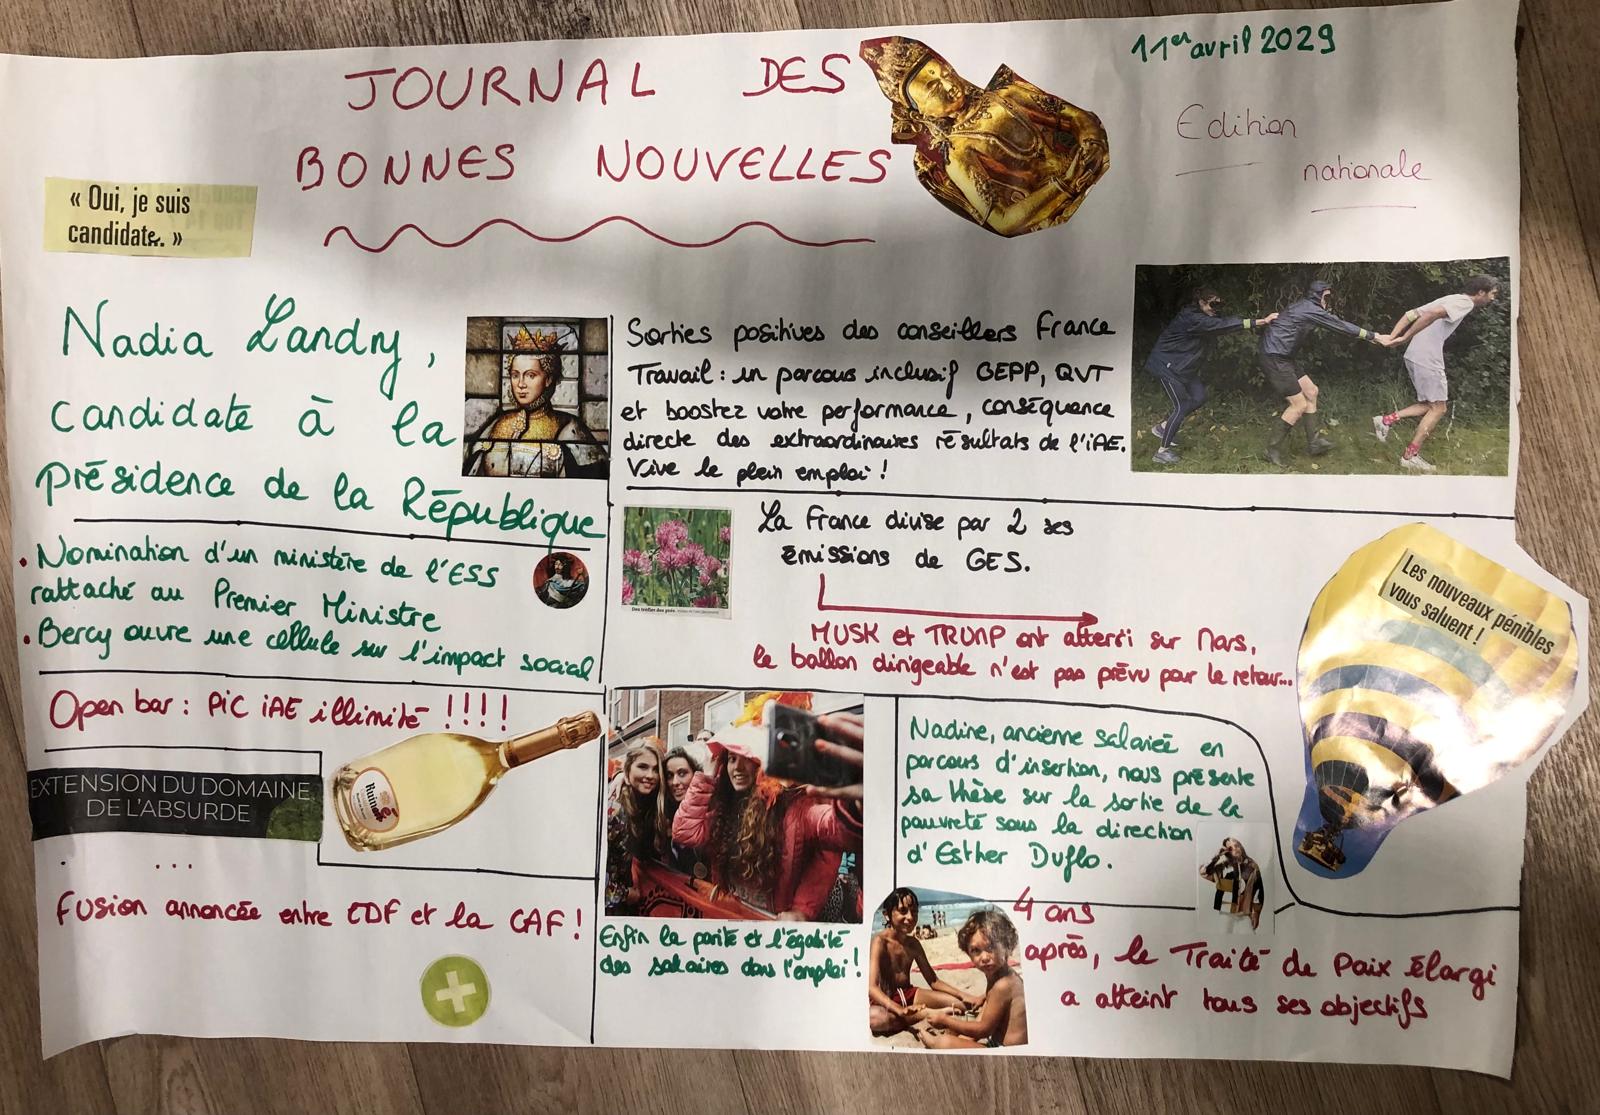 JOURNAL DES
BONNES NOUVELLES
11er avril 2029
Edition
nationale
« Oui, je suis
candidate. »
Nadia Landry,
candidate à la
présidence de la République
Sorties positives des conseillers France
Travail : un parcours inclusif GEPP, QVT
et boostez votre performance, conséquence
directe des extraordinaires résultats de l'iAE.
Vive le plein emploi !
• Nomination d'un ministère de l'ESS
rattaché au Premier Ministre
• Bercy ouvre une cellule sur l'impact social
La France divise par 2 ses
émissions de GES.
MUSK et TRUMP ont atterri sur Mars,
le ballon dirigeable n'est pas prévu pour le retour...
Les nouveaux pénibles
vous saluent !
Open bar : PiC iAE illimité !!!!
Ruinart
EXTENSION DU DOMAINE
DE L'ABSURDE
...
Fusion annoncée entre EDF et la CAF !
Enfin la parité et l'égalité
des salaires dans l'emploi !
Nadine, ancienne salariée en
parcours d'insertion, nous présente
sa thèse sur la sortie de la
pauvreté sous la direction
d'Esther Duflo.
4 ans
après, le Traité de Paix élargi
a atteint tous ses objectifs